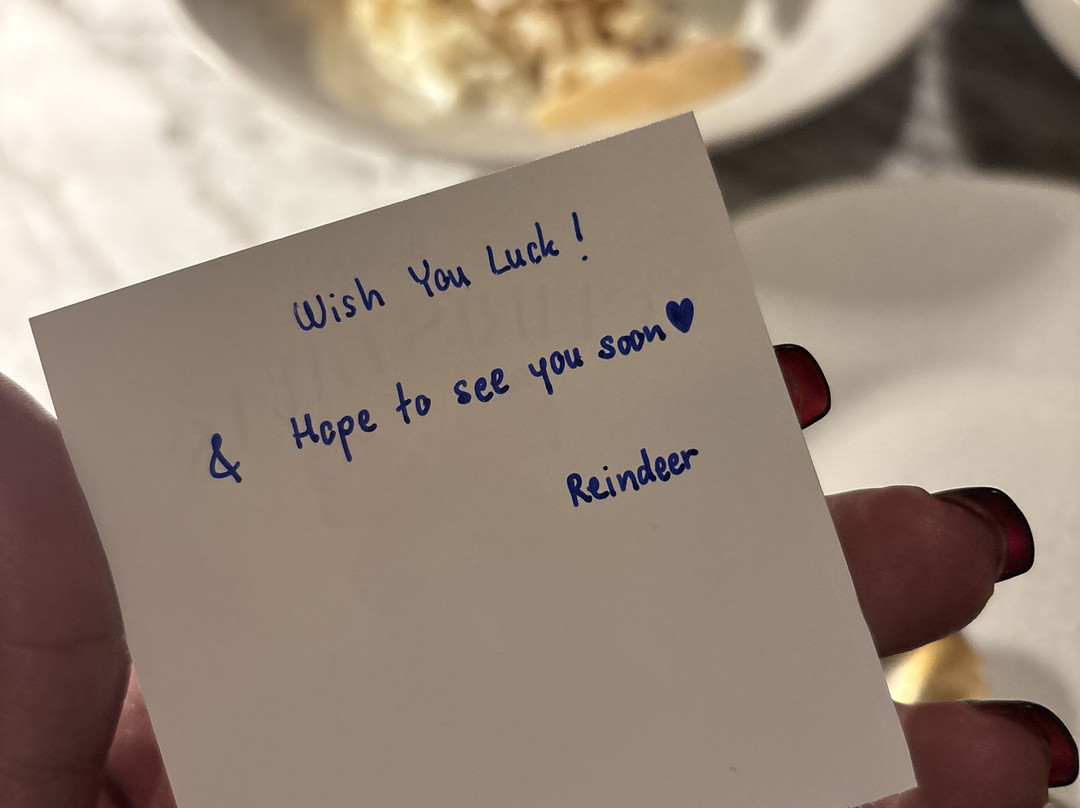 Wish You Luck!
& Hope to see you soon♥
Reindeer